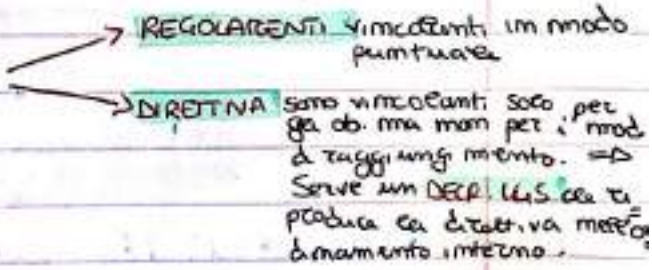 REGOLAMENTI vincolanti in modo
puntuale
DIRETTIVA sono vincolanti solo per
gli ob. ma non per i mod
di raggiungimento. =>
Serve un DECR. LGS che ri=
produca la direttiva nell'or
dinamento interno.